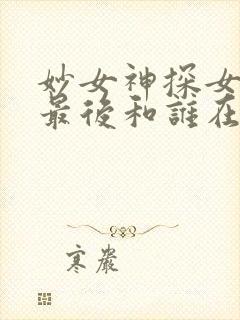 妙女神探女
最後和誰在
寒嚴